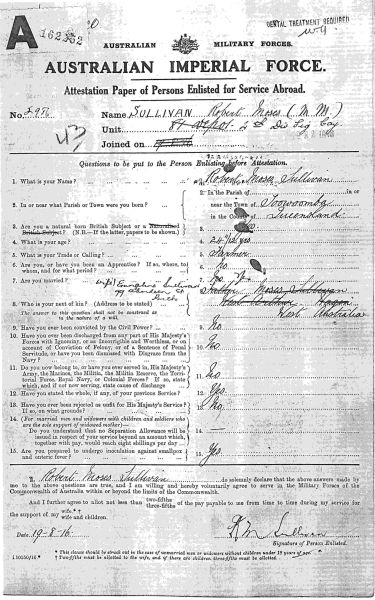 A 162352
DENTAL TREATMENT REQUIRED
AUSTRALIAN MILITARY FORCES.
AUSTRALIAN IMPERIAL FORCE.
Attestation Paper of Persons Enlisted for Service Abroad.
No.
Name SULLIVAN Robert Moses (M.M.)
43
Unit
Joined on
Questions to be put to the Person Enlisting before Attestation.
1. What is your Name?
1. Robert Moses Sullivan
2. In or near what Parish or Town were you born?
In the Parish of in or
near the Town of Toowoomba
in the County of Queensland
3. Are you a natural born British Subject or a Naturalized
British Subject? (N.B.—If the latter, papers to be shown.)
4. What is your age?
4. 24
5. What is your Trade or Calling?
5. Farmer
6. Are you, or have you been an Apprentice? If so, where,
to whom, and for what period?
6. No
7. Are you married?
Sullivan
8. Who is your next of kin? (Address to be stated)
The answer to this question shall not be construed as
in the nature of a will.
Moses Sullivan
West Australia
9. Have you ever been convicted by the Civil Power?
9. No
10. Have you ever been discharged from any part of His Majesty's
Forces with Ignominy, or as Incorrigible and Worthless, or on
account of Conviction of Felony, or of a Sentence of Penal
Servitude, or have you been dismissed with Disgrace from the
Navy?
10. No
11. Do you now belong to, or have you ever served in, His Majesty's
Army, the Marines, the Militia, the Militia Reserve, the Terri-
torial Force, Royal Navy, or Colonial Forces? If so, state
which, and if not now serving, state cause of discharge
11. No
12. Have you stated the whole, if any, of your previous service?
12. Yes
13. Have you ever been rejected as unfit for His Majesty's Service?
If so, on what grounds?
13. No
14. (For married men and widowers with children and soldiers who
are the sole support of widowed mother)—
Do you understand that no Separation Allowance will be
issued in respect of your service beyond an amount which,
together with pay, would reach eight shillings per day
14. —
15. Are you prepared to undergo inoculation against smallpox and
enteric fever?
15. Yes
I, Robert Moses Sullivan do solemnly declare that the above answers made by
me to the above questions are true, and I am willing and hereby voluntarily agree to serve in the Military Forces of the
Commonwealth of Australia within or beyond the limits of the Commonwealth.
And I further agree to allot not less than two-fifths three-fifths of the pay payable to me from time to time during my service for
the support of my wife.* wife and children.
Date 19-8-16
R M Sullivan
Signature of Person Enlisted.
* This clause should be struck out in the case of unmarried men or widowers without children under 18 years of age.
† Two-fifths must be allotted to the wife, and if there are children three-fifths must be allotted.